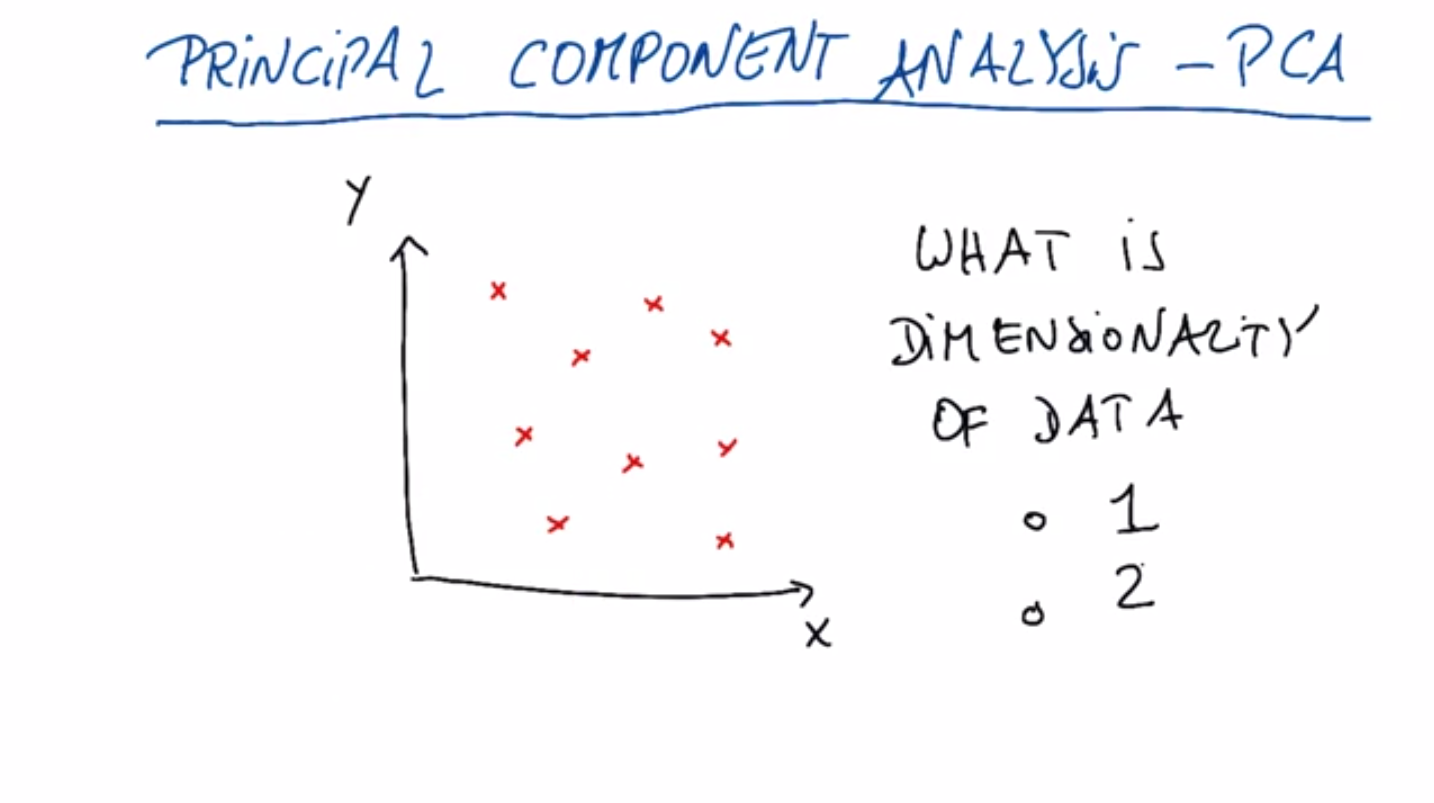 PRINCIPAL COMPONENT ANALYSIS - PCA
Y
WHAT IS
DIMENSIONALITY
OF DATA
1
2
X